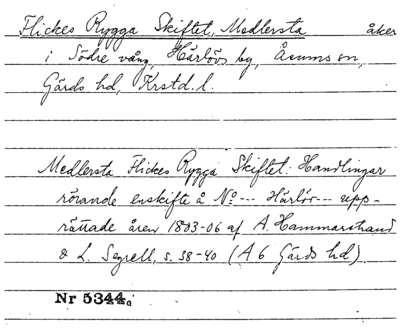 Flickes Rygga Skiftet, Medlersta åker
i Södre vång, Härlövs by, Åsums sn,
Gärds hd, Krstd. l.
Medlersta Flickes Rygga Skiftet: Handlingar
rörande enskifte å No --- Härlöv --- upp-
rättade åren 1803-06 af A. Hammarstrand
& L. Segrell, s. 38-40 (A 6 Gärds hd).
Nr 5344.